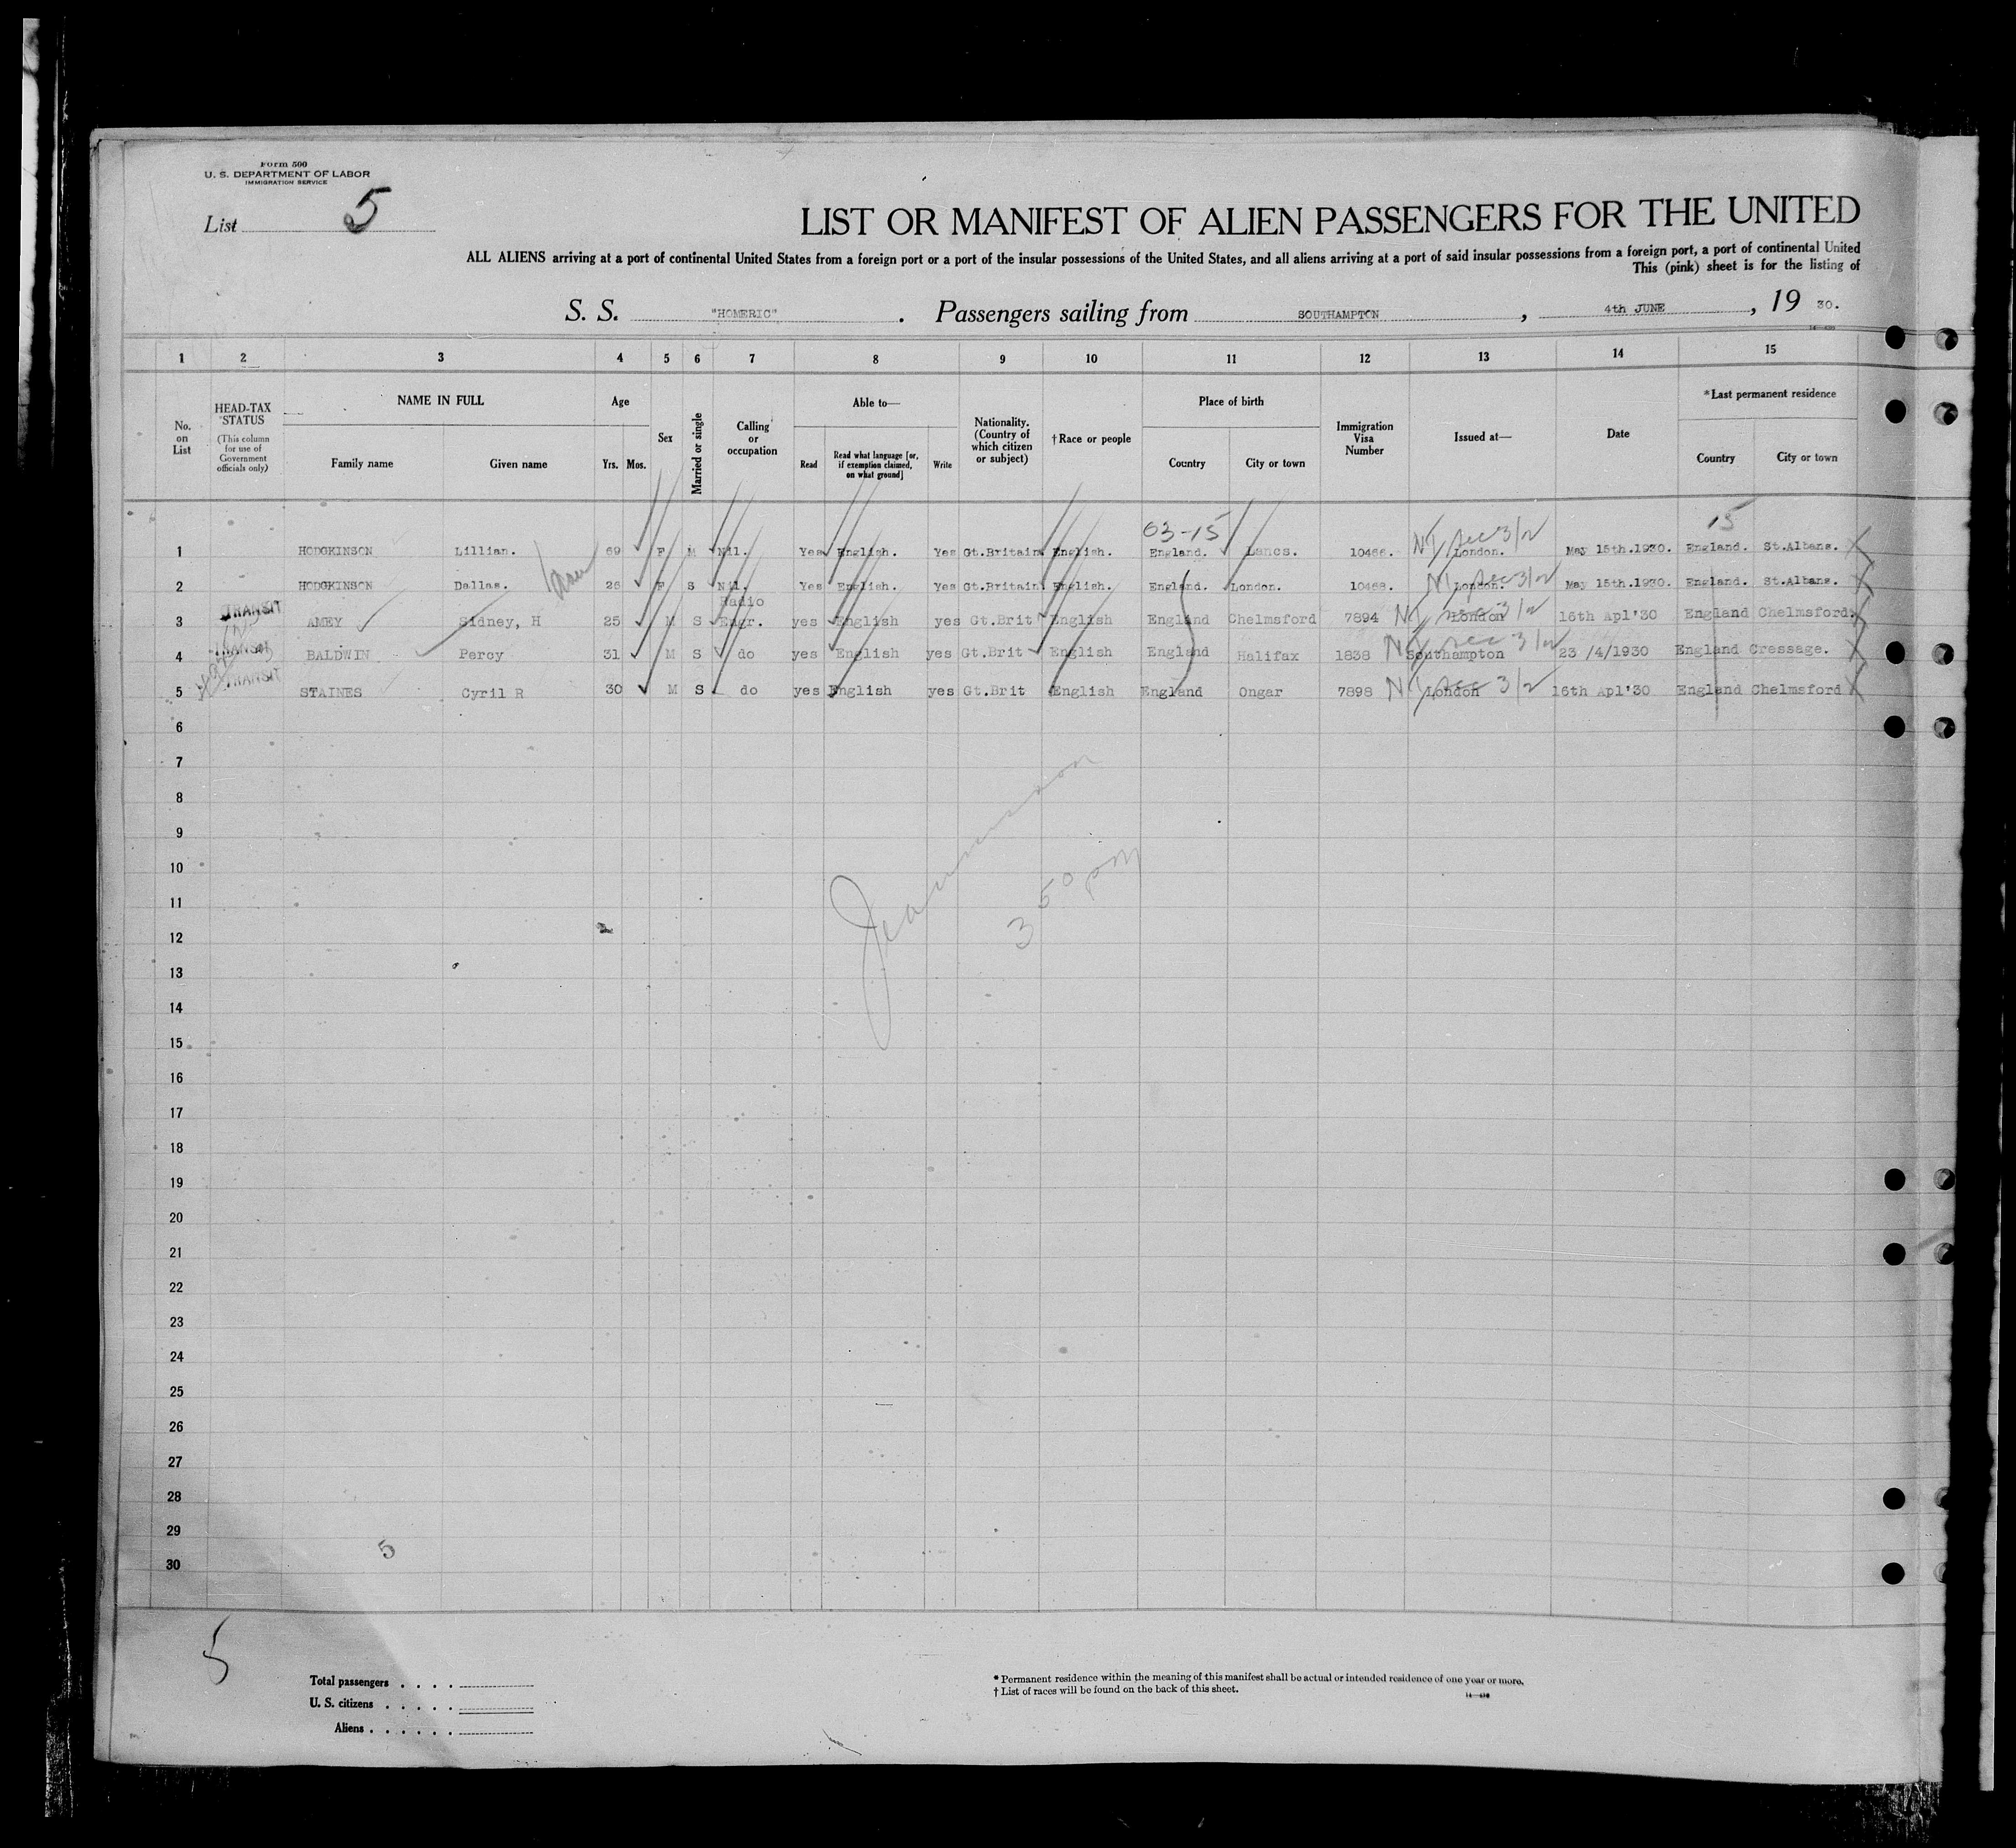 Form 500
U. S. DEPARTMENT OF LABOR
IMMIGRATION SERVICE
List 5
LIST OR MANIFEST OF ALIEN PASSENGERS FOR THE UNITED
ALL ALIENS arriving at a port of continental United States from a foreign port or a port of the insular possessions of the United States, and all aliens arriving at a port of said insular possessions from a foreign port, a port of continental United
This (pink) sheet is for the listing of
S. S. "HOMERIC". Passengers sailing from SOUTHAMPTON, 4th JUNE, 19 30.
1 2 3 4 5 6 7 8 9 10 11 12 13 14 15
No. on List
HEAD-TAX STATUS (This column for use of Government officials only)
NAME IN FULL
Family name Given name
Age
Yrs. Mos.
Sex
Married or single
Calling or occupation
Able to—
Read Read what language [or, if exemption claimed, on what ground] Write
Nationality. (Country of which citizen or subject)
†Race or people
Place of birth
Country City or town
Immigration Visa Number
Issued at—
Date
*Last permanent residence
Country City or town
03-15 15
1 HODGKINSON Lillian. 69 F M Nil. Yes English. Yes Gt.Britain English. England. Lancs. 10466. London. May 15th.1930. England. St.Albans.
NY Sec 3/2
2 HODGKINSON Dallas. 26 F S Nil. Yes English. Yes Gt.Britain English. England. London. 10468. London. May 15th.1930. England. St.Albans.
Sec 3/2
Radio
3 TRANSIT AMEY Sidney, H 25 M S Engr. yes English yes Gt.Brit English England Chelmsford 7894 London 16th Apl'30 England Chelmsford.
Sec 3/2
4 TRANSIT BALDWIN Percy 31 M S do yes English yes Gt.Brit English England Halifax 1838 Southampton 23 /4/1930 England Cressage.
Sec 3/2
5 TRANSIT STAINES Cyril R 30 M S do yes English yes Gt.Brit English England Ongar 7898 London 16th Apl'30 England Chelmsford
Sec 3/2
6
7
8
9
10
11
12
13
14
15
16
17
18
19
20
21
22
23
24
25
26
27
28
29
30
3 50 pm
5
5
Total passengers . . . .
U. S. citizens . . . . .
Aliens . . . . . .
* Permanent residence within the meaning of this manifest shall be actual or intended residence of one year or more.
† List of races will be found on the back of this sheet.